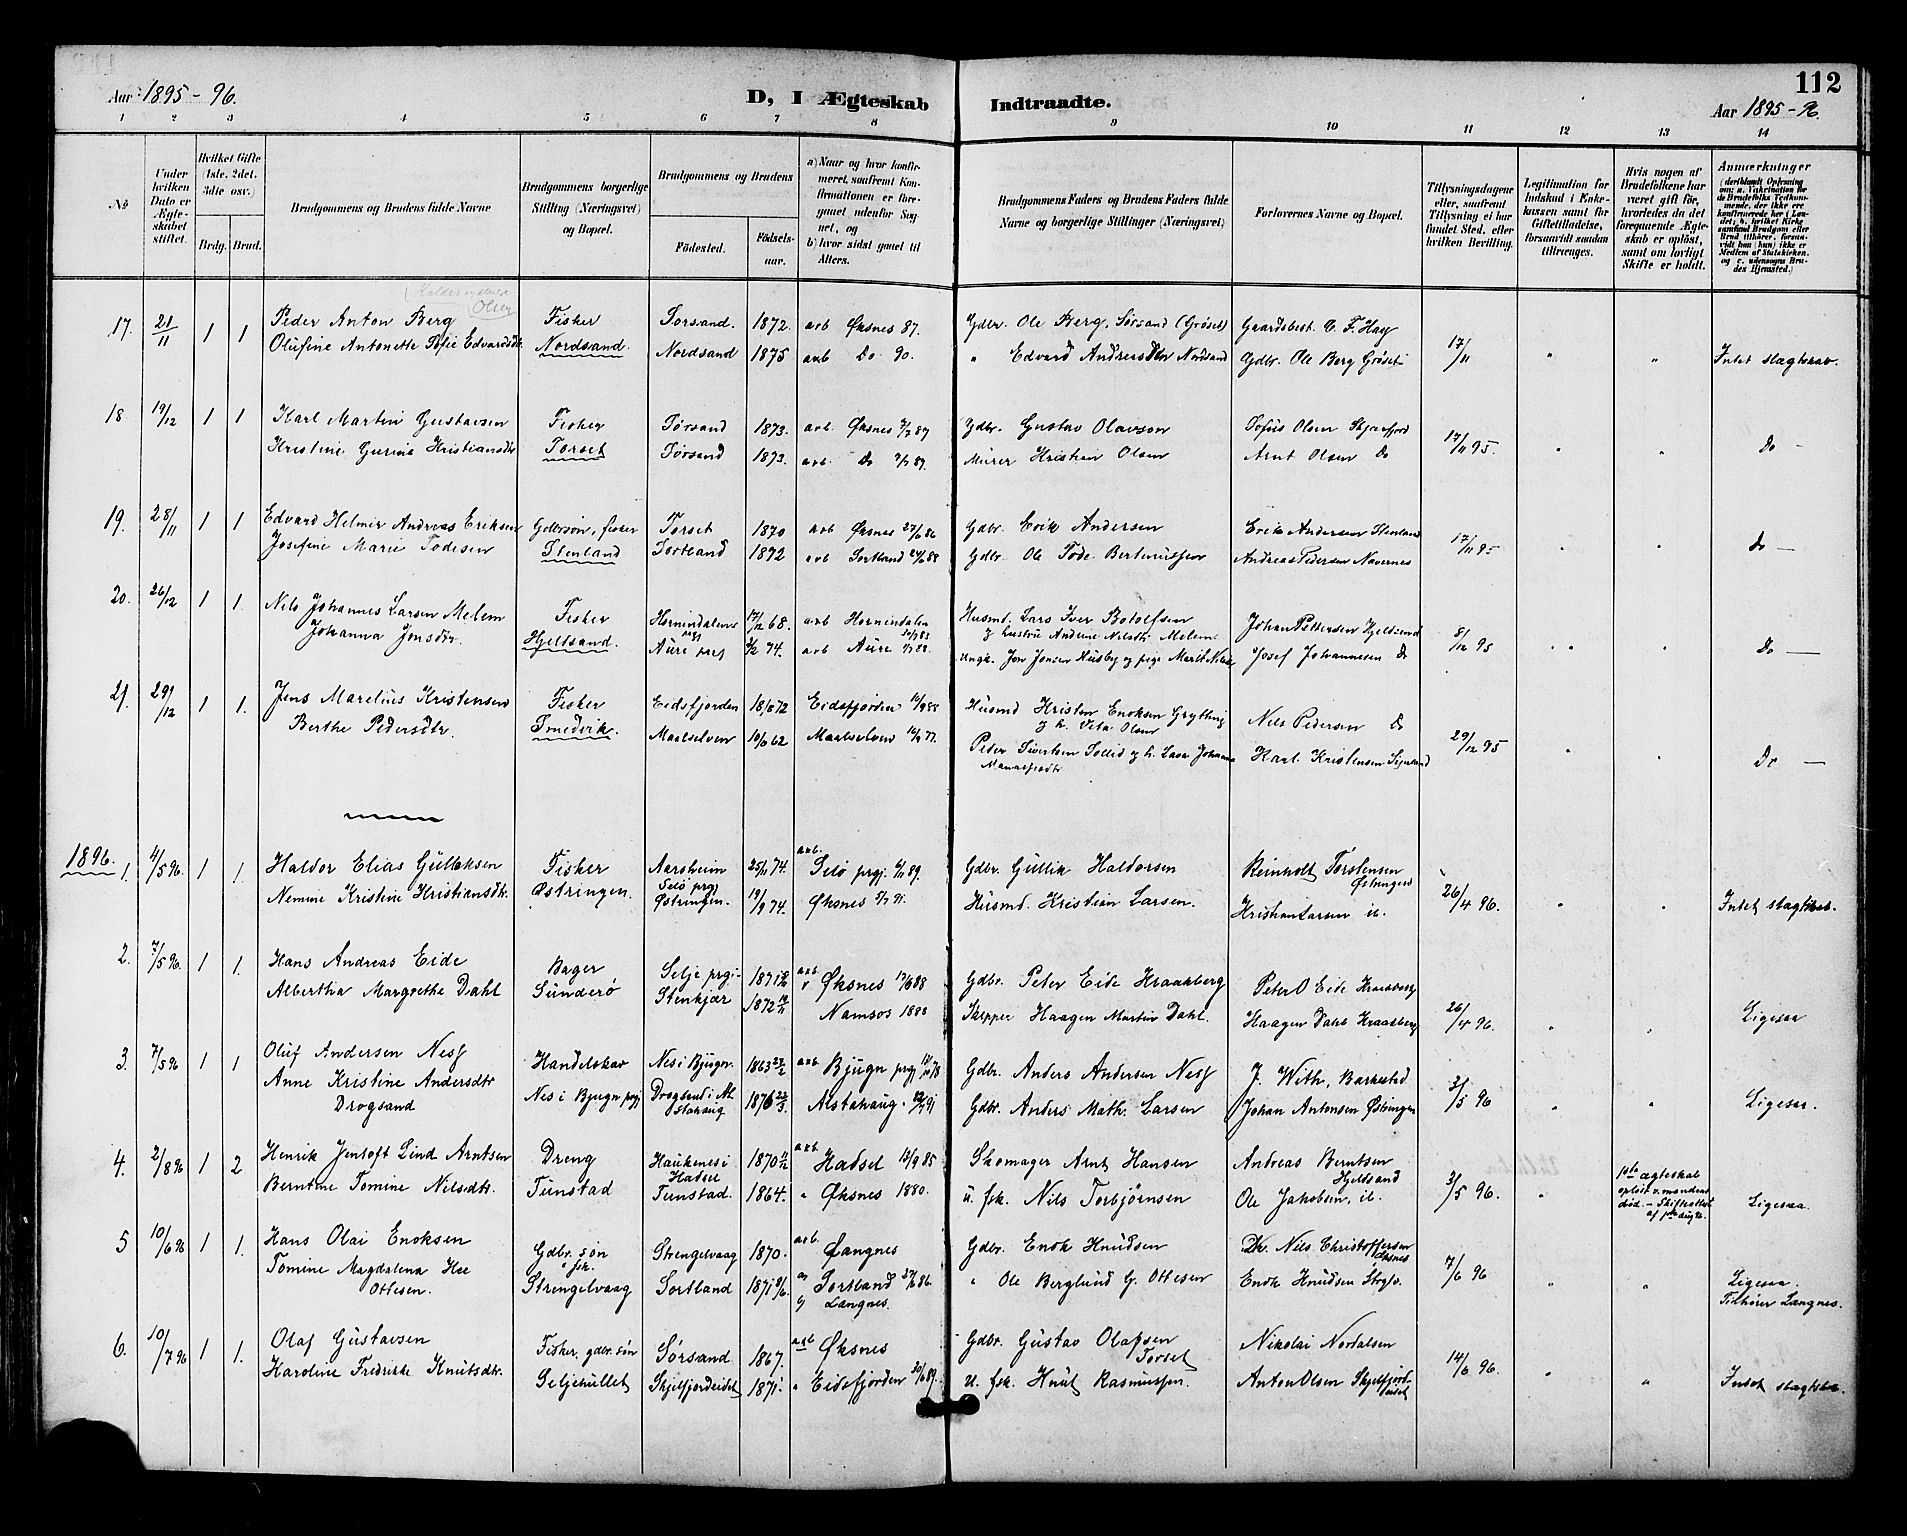 112
Aar 1895-96. D, I Ægteskab Indtraadte. Aar 1895-96.
1 2 3 4 5 6 7 8 9 10 11 12 13 14
No
Under hvilken Dato er Ægteskabet stiftet.
Hvilket Gifte (1ste, 2det, 3die osv.)
Brdg. Brud.
Brudgommens og Brudens fulde Navne
Brudgommens borgerlige Stilling (Næringsvei) og Bopæl.
Brudgommens og Brudens
Födested. Födselsaar.
a) Naar og hvor konfirmeret, saafremt Konfirmationen er foregaaet udenfor Sognet, og
b) hvor sidst gaaet til Alters.
Brudgommens Faders og Brudens Faders fulde Navne og borgerlige Stillinger (Næringsvei)
Forlovernes Navne og Bopæl.
Tillysningsdagene eller, saafremt Tillysning ei har fundet Sted, efter hvilken Bevilling.
Legitimation for Indskud i Enkekassen samt for Giftetilladelse, forsaavidt saadan tiltrænges.
Hvis nogen af Brudefolkene har været gift før, hvorledes da det foregaaende Ægteskab er oplöst, samt om lovligt Skifte er holdt.
Anmærkninger
17. 21/11 1 1 Peder Anton Berg (Olsen) Fisker Sorsand. 1872. a+b Øksnes 87. Gdbr. Ole Berg, Sørsand (Grøset) Gaardsbest. C. F. Hay 17/11
Olufine Antonette Sofie Edvardsdt. Nordsand. Nordsand 1875 a+b Do 90. " Edvard Andreassen Nordsand Gdbr. Ole Berg Grøset " " Intet slægtskab.
18 19/12 1 1 Karl Martin Gustavsen Fisker Sørsand 1873. a+b Øksnes 7/7 87 Gdbr. Gustav Olavson Sofus Olsen Skjelfjord 17/11 95.
Kristine Gurine Kristiansdtr Torset Sørsand 1873. a+b. Do 7/7 87. Murer Kristian Olsen Arnt Olsen Do Do -
19. 28/11 1 1 Edvard Helmer Andreas Eriksen Gdbrsøn, fisker Torset 1870 a+b Øksnes 27/6 86 Gdbr. Erik Andersen Erik Andersen Stenland 17/11 95
Josefine Marie Todesen Stenland Sortland 1872 a+b Sortland 24/6 88 Gdbr. Ole Tode Bertinussen Andreas Pedersen Navernes Do -
20. 26/12 1 1. Nils Johannes Larsen Melem Fisker Hornindalens 17/12 68. a+b Hornindalen Husmd. Lars Iver Botolfsen Johan Pettersen Hjeldsand 8/12 95
Johanna Jonsdtr. Hjeldsand. Aure prgj 74. a+b Aure Ungk. Jon Jonsen Husby og pige Marit Nilsd. Josef Johannesen Do Do -
21. 29/12 1 1. Jens Marelius Kristensen Fisker Eidsfjorden 72 Eidsfjorden Husmd Kristen Enoksen Grytting Nils Pedersen Do 29/12 95
Berthe Pedersdtr. Smedvik. Maalselven 62 Maalselven 77. Peder Sivertsen Sollid og h. Johanna Karl Kristensen Do -
1896.
1. 4/5 96. 1 1. Haldor Elias Gulleksen Fisker Aarsheim 25/11 74. a+b. Selö prgj. 89. Gdbr. Gullik Haldorsen Reinholt Torstensen Østringen 26/4 96.
Nemine Kristine Kristiansdtr. Østringen. Selø prgj Østringen. 19/9 74. Øksnes 91. Husmd. Kristian Larsen. Kristian Larsen ib. Intet slægtskab.
2. 7/5 96. 1 1. Hans Andreas Eide Bager Selje prgj. 1871 a+b Øksnes 13/6 88 Gdbr. Peter Eide Kraakberg Peter O Eide Kraakberg 26/4 96.
Albertha Margrethe Dahl Sunderø Stenkjær 1872 Namsos 1888 Skipper Haagen Martin Dahl. Haagen Dahl Kraakberg Ligesaa
3. 7/5 96 1 1 Oluf Andersen Nesf Handelskar Nes i Bjugn. 1863 a+b Bjugn prgj 78 Gdbr. Anders Andersen Nesf J. With, Barkestad 3/5 96
Anne Kristine Andersdtr Drogsand Nes i Bjugn prgj Drogsand i Alstahaug 1876 Alstahaug. 91 Gdbr. Anders Math. Larsen Johan Antonsen Østringen Ligesaa.
4. 2/8 96 1 2 Henrik Jentoft Lind Arntsen Dreng Haukenes i Hadsel 1870 a+b Hadsel 13/9 85 Skomager Arnt Hansen Andreas Berntsen Hjeldsand 3/5 96.
Berntine Tomine Nilsdtr. Tunstad Tunstad. 1864. " Øksnes 1880. u. fsk. Nils Torbjørnsen Ole Jakobsen, ib. 1ste ægteskab opløst v. mandens død. Ligesaa.
5 10/6 96 1 1. Hans Olai Enoksen Gdbr. søn fsk. Strengelvaag 1870. a+b. Langnes Gdbr. Enok Knudsen Nils Christoffersen Øksnes 7/6 96
Tomine Magdalena Hee Ottesen. Strengelvaag Sortland 1871 Sortland 86. Langnes. " Ole Berglund G. Ottesen Enok Knudsen Strglv. Ligesaa. Tilhører Langnes.
6. 10/7 96 1 1. Olaf Gustavsen Fisker, gdbr. søn Sørsand 1867. a+b Øksnes Gdbr. Gustav Olafsen Torset Nikolai Nordalsen 14/6 96
Karoline Fredrikke Knutsdtr. Seljehullet Skjelfjordeidet 1871. " Eidsfjorden 89. U. fsk. Knut Rasmussen. Anton Olsen Intet slægtska.